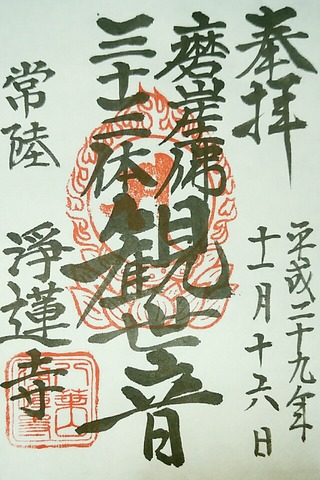 奉拝
平成二十九年
十一月十六日
磨崖佛
三十三体
観世音
常陸
浄蓮寺